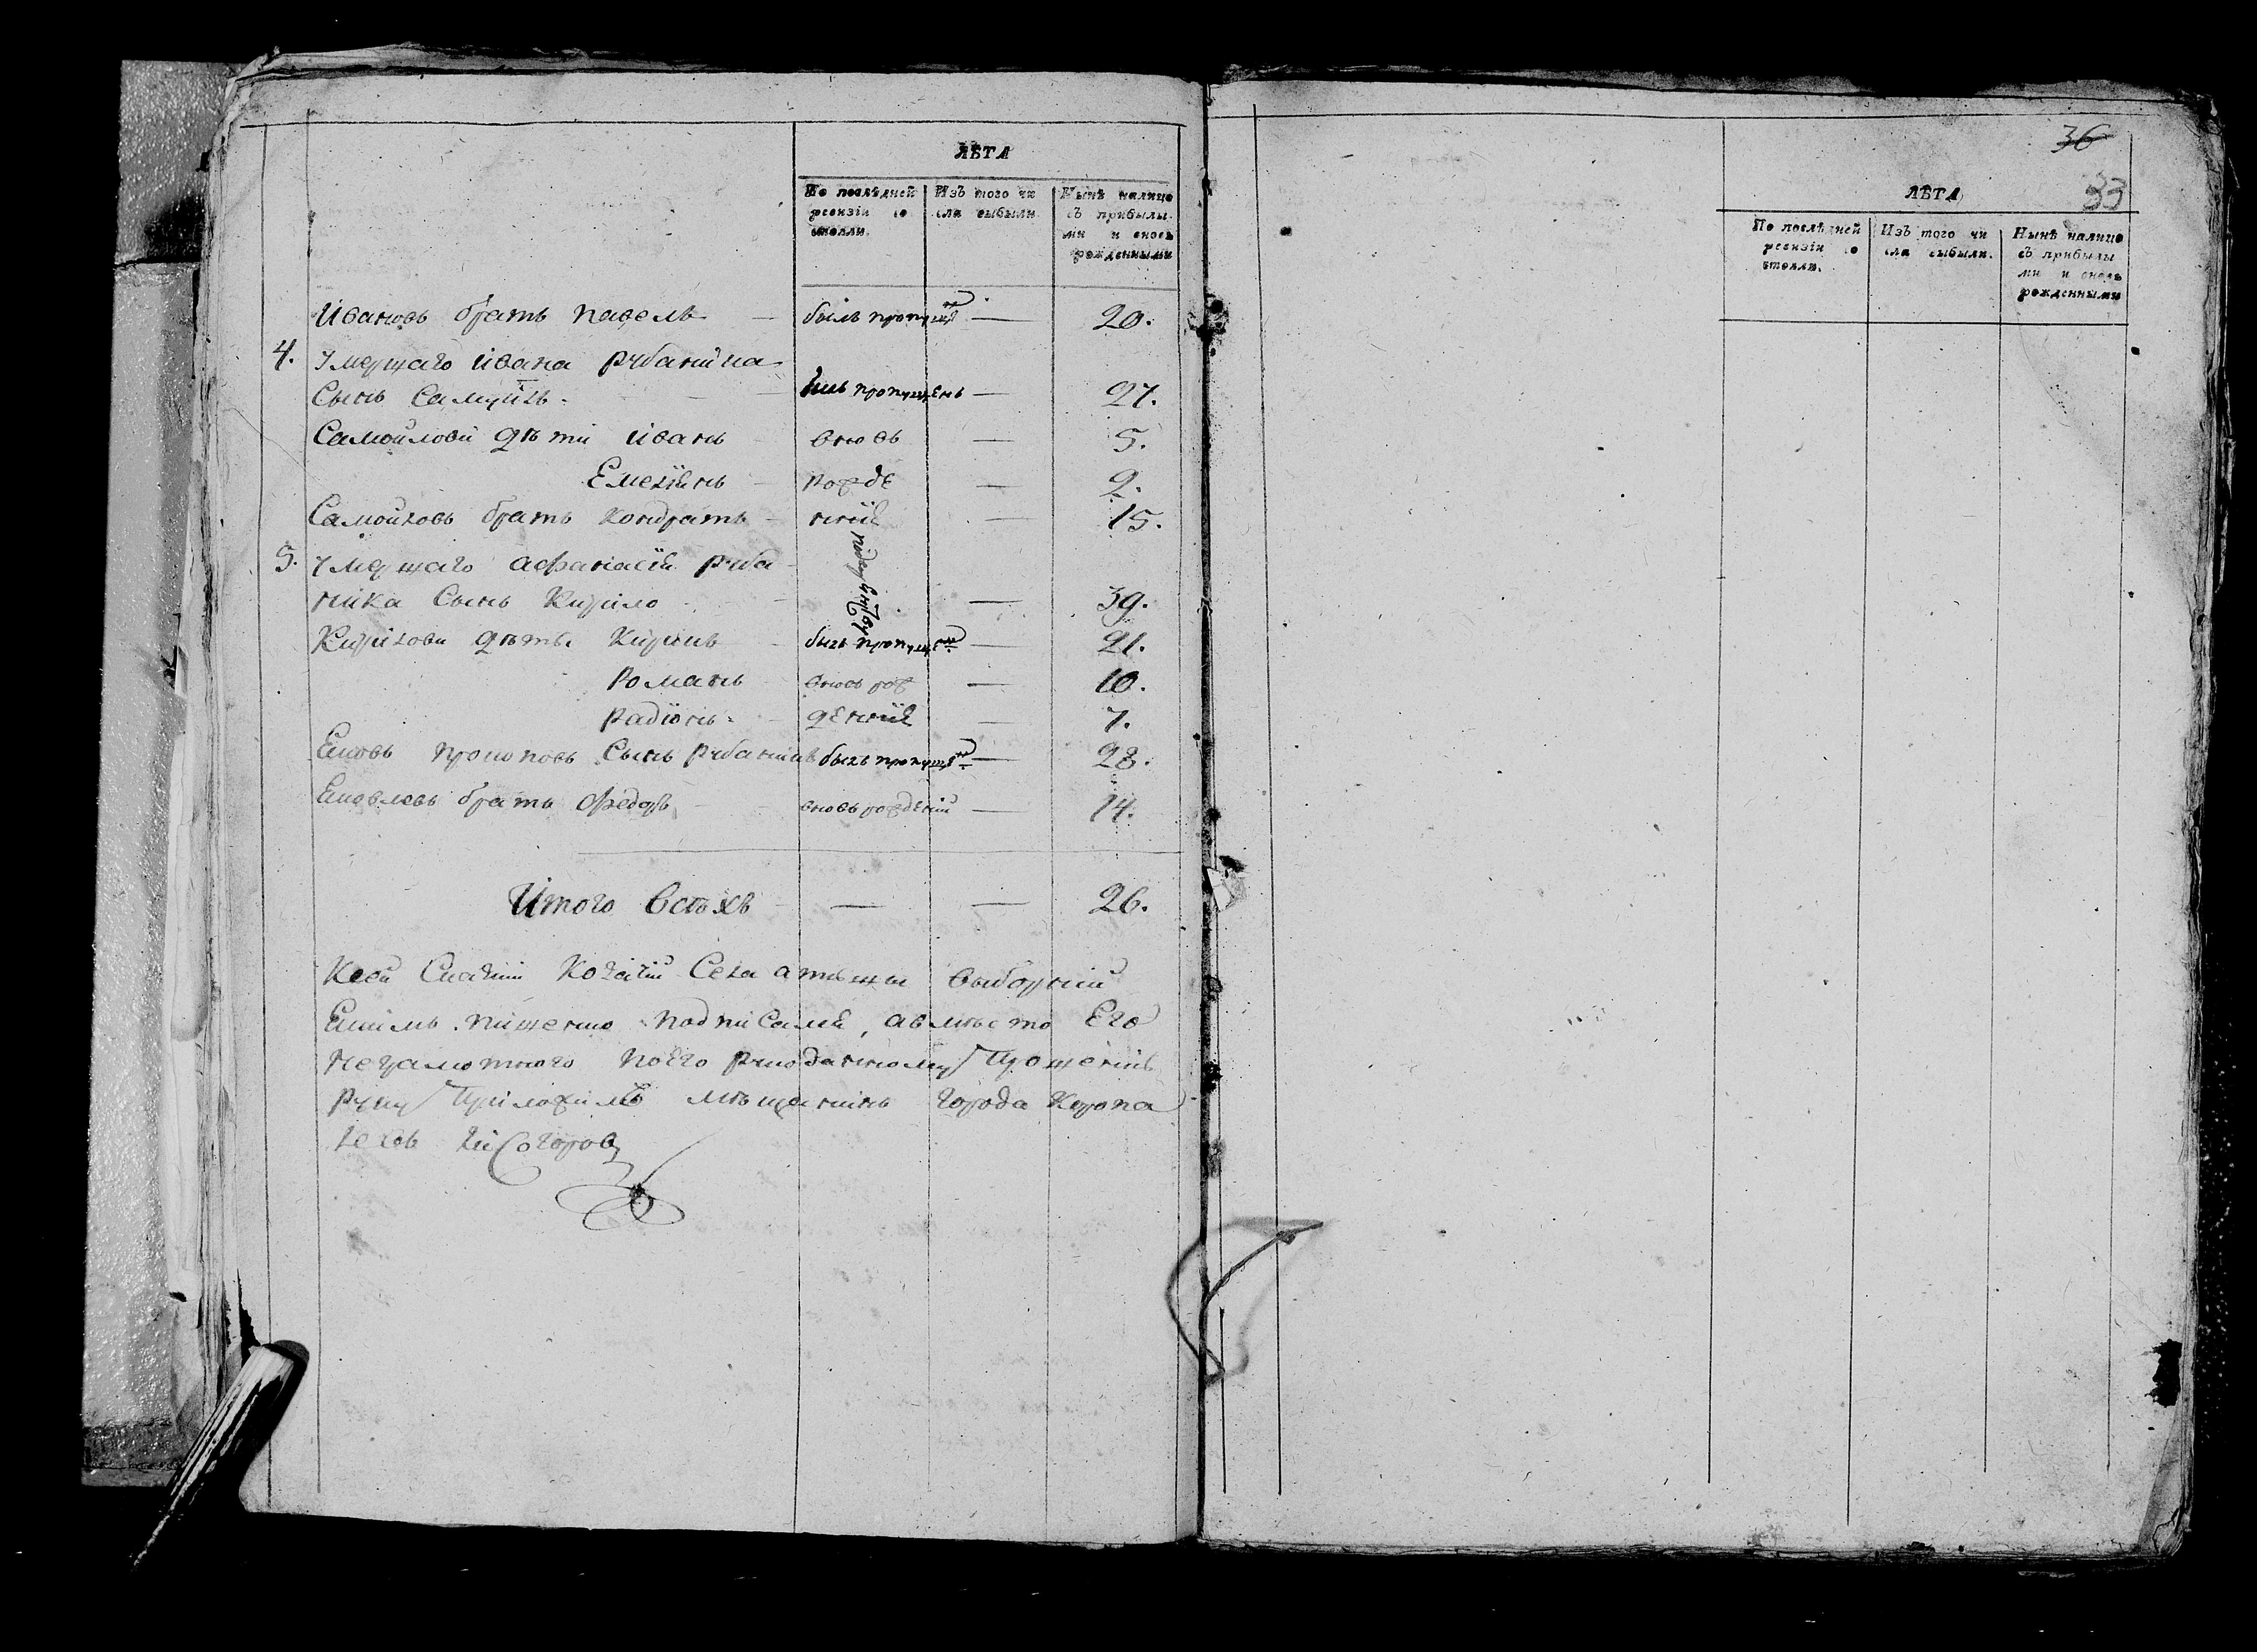 ЛѢТА
По послѣдней ревизіи со стояли.
Изъ того чи сла выбыли
Нынѣ налице съ прибылы ми и вновь рожденными
Ивановъ братъ павелъ — былъ пропущен — 20.
4. Умершаго ивана рубанина
Сынъ Самуилъ. — былъ пропущенъ — 27.
Самойлови дѣти иванъ вновь — 5.
Емелиянъ рожде — 2.
Самойловъ братъ кондратъ нній — 15.
5. Умершаго афанасія руба
ника Сынъ Кирило — 39.
Кирилови дѣти былъ пропущен — 21.
Романъ вновь рож — 10.
Радіонъ. денній — 7.
Сынъ былъ пропущен — 28.
братъ Федоръ вновь рожденій — 14.
Итого всѣхъ — — 26.
Села выборній
подписалъ, а вмѣсто Его
неграмотного по его прошенію
руку приложилъ мѣщанинъ города Коропа
36
33
ЛѢТА
По послѣдней ревизіи со стояли.
Изъ того чи сла выбыли.
Нынѣ налице съ прибылы ми и вновь рожденными